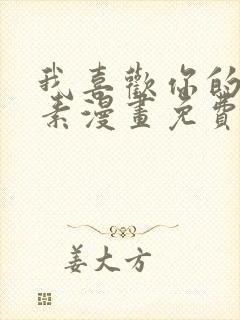 我喜歡你的
素漫畫免費
姜大方